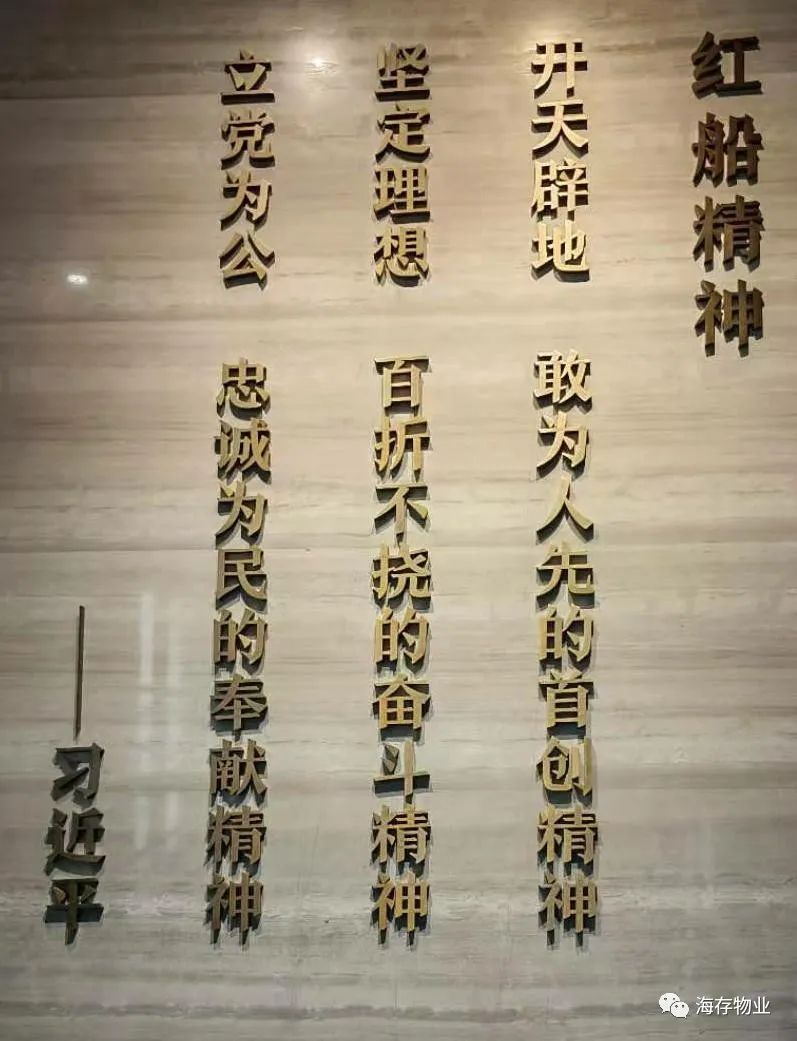 红船精神
开天辟地 敢为人先的首创精神
坚定理想 百折不挠的奋斗精神
立党为公 忠诚为民的奉献精神
——习近平
海存物业